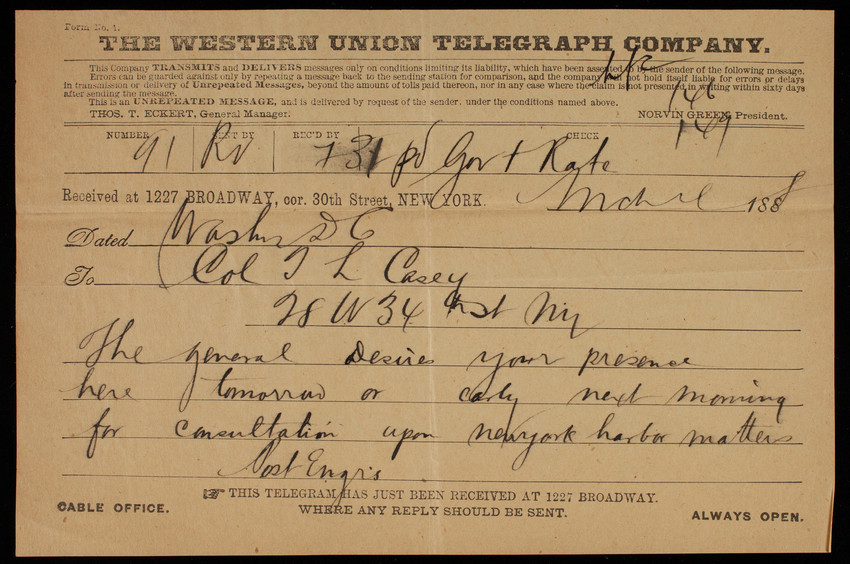 Form No. 1.
THE WESTERN UNION TELEGRAPH COMPANY.
This Company TRANSMITS and DELIVERS messages only on conditions limiting its liability, which have been assented to by the sender of the following message.
Errors can be guarded against only by repeating a message back to the sending station for comparison, and the company will not hold itself liable for errors or delays
in transmission or delivery of Unrepeated Messages, beyond the amount of tolls paid thereon, nor in any case where the claim is not presented in writing within sixty days
after sending the message.
This is an UNREPEATED MESSAGE, and is delivered by request of the sender, under the conditions named above.
THOS. T. ECKERT, General Manager. NORVIN GREEN, President.
146
NUMBER SENT BY REC'D BY CHECK
91 Rv 31 pd Gov't Rate
Received at 1227 BROADWAY, cor. 30th Street, NEW YORK. 188
Dated Washn DC
To Col T L Casey
28 W 34 th st Ny
The general desires your presence
here tomorrow or early next morning
for consultation upon newyork harbor matters
Post Engrs
THIS TELEGRAM HAS JUST BEEN RECEIVED AT 1227 BROADWAY.
CABLE OFFICE. WHERE ANY REPLY SHOULD BE SENT. ALWAYS OPEN.